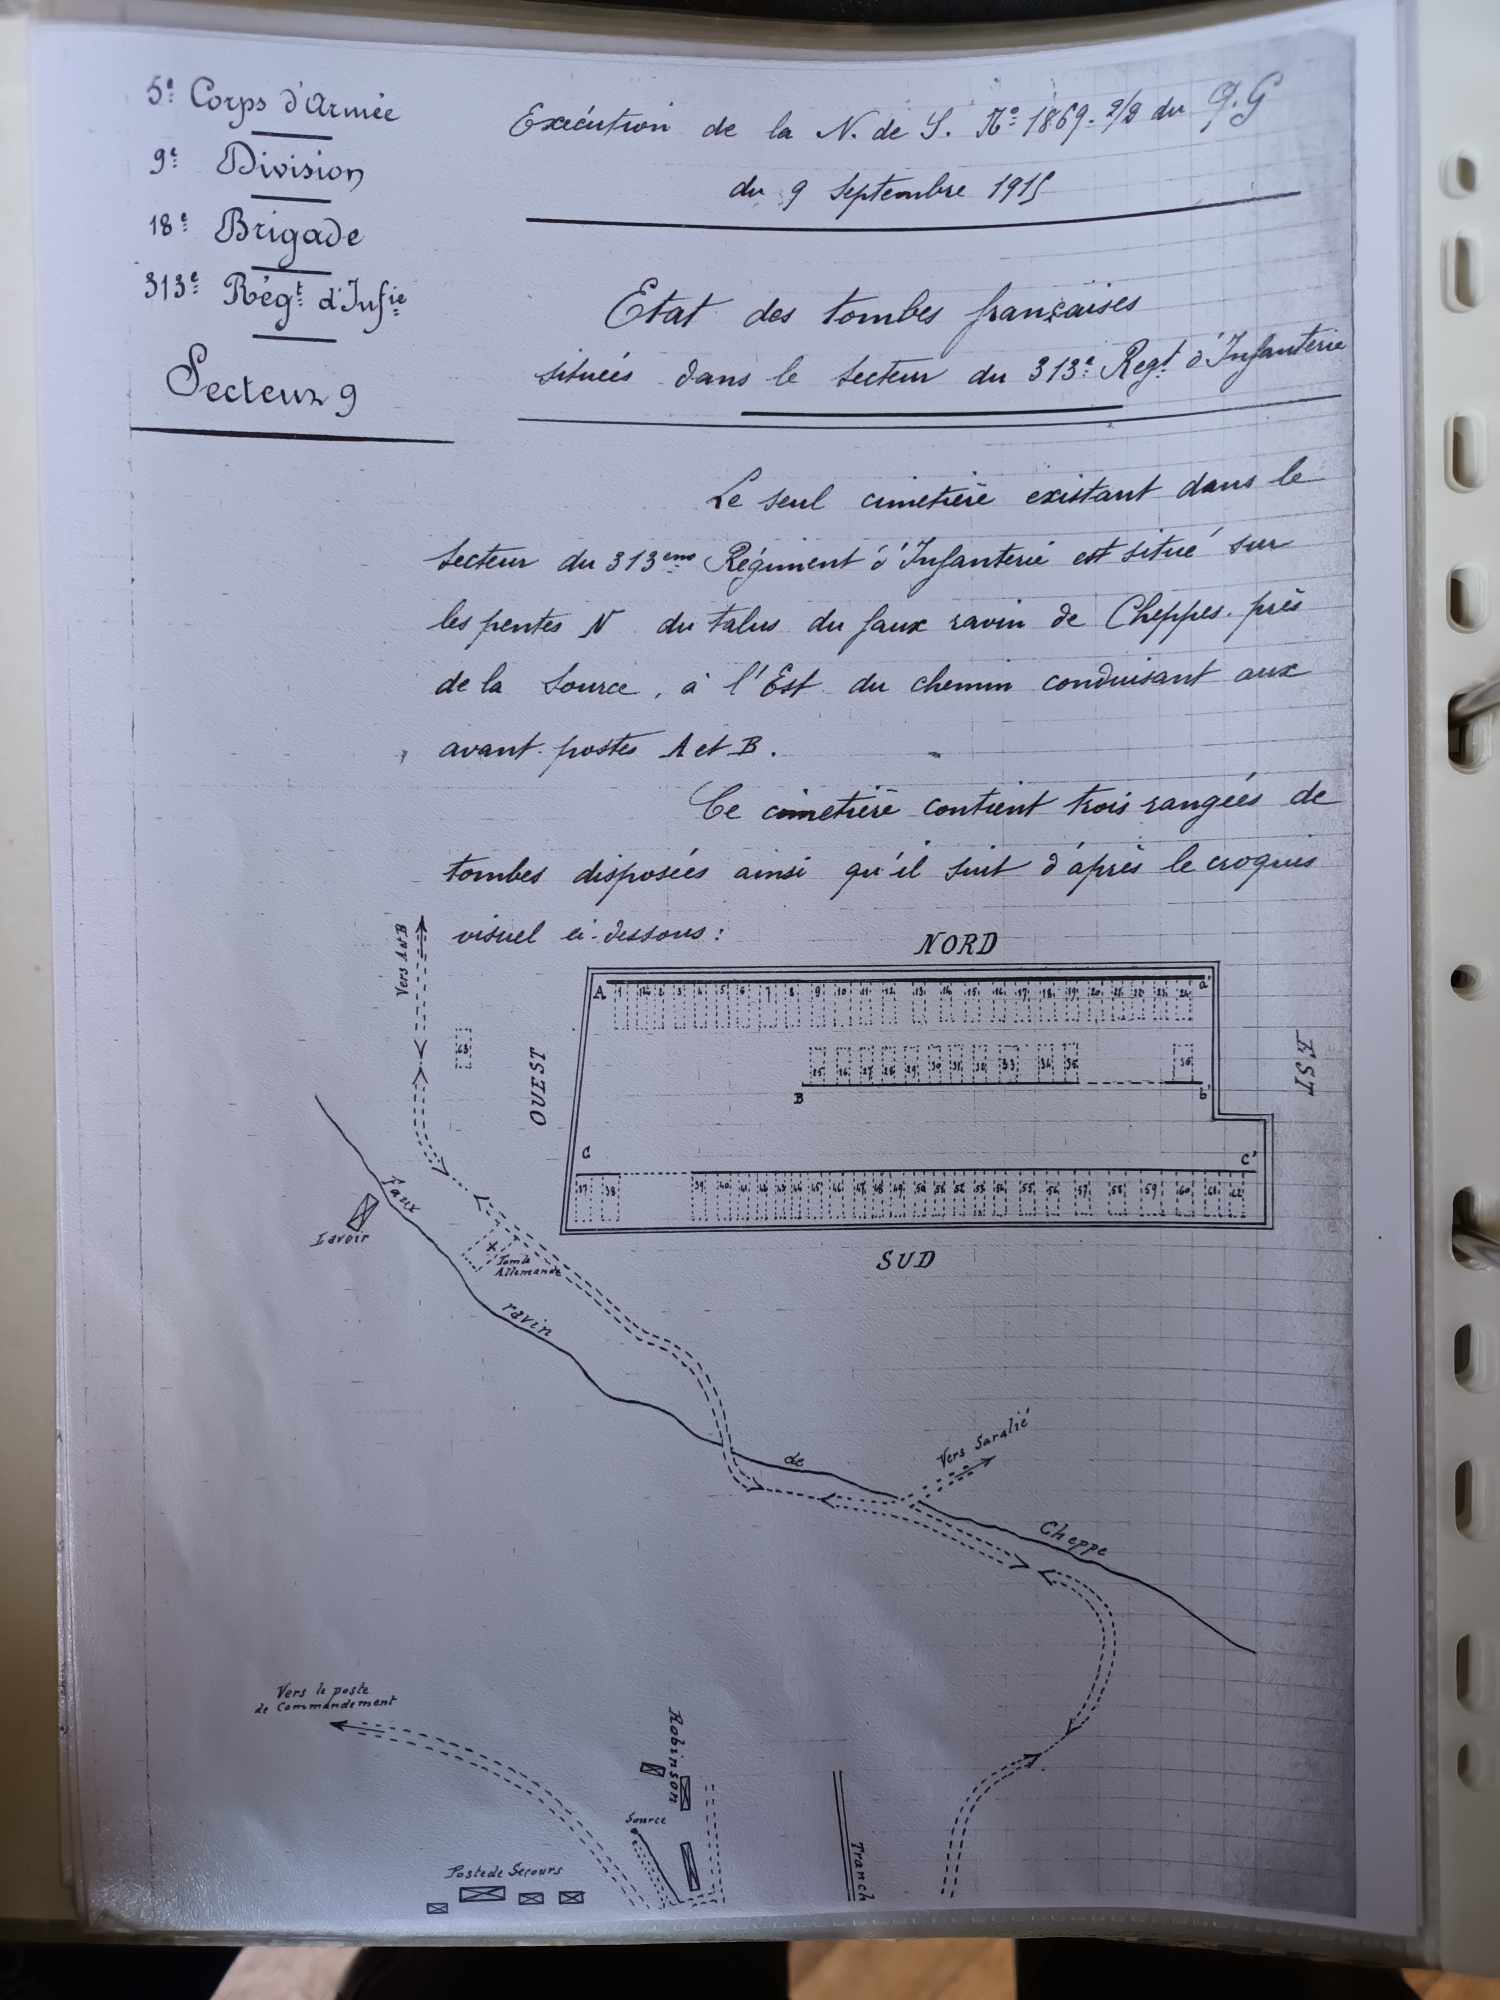 5e Corps d'Armée
9e Division
18e Brigade
313e Régt d'Infie
Secteur 9
Exécution de la N. de S. No 1869-2/2 du Q.G
du 9 Septembre 1915
Etat des tombes françaises
situées dans le Secteur du 313e Régt d'Infanterie
Le seul cimetière existant dans le
Secteur du 313eme Régiment d'Infanterie est situé sur
les pentes N du talus du faux ravin de Cheppes près
de la Source, à l'Est du chemin conduisant aux
avant-postes A et B.
Ce cimetière contient trois rangées de
tombes disposées ainsi qu'il suit d'après le croquis
visuel ci-dessous :
Vers A et B
NORD
A
a'
1 2 3 4 5 6 7 8 9 10 11 12 13 14 15 16 17 18 19 20 21 22 23 24
63
OUEST
EST
25 26 27 28 29 30 31 32 33 34 35 36
B
b'
C
C'
37 38 39 40 41 42 43 44 45 46 47 48 49 50 51 52 53 54 55 56 57 58 59 60 61 62
SUD
Faux
Lavoir
Tombe
Allemande
ravin
de
Vers Saralié
Cheppe
Vers le poste
de Commandement
Robinson
Source
Poste de Secours
Tranch